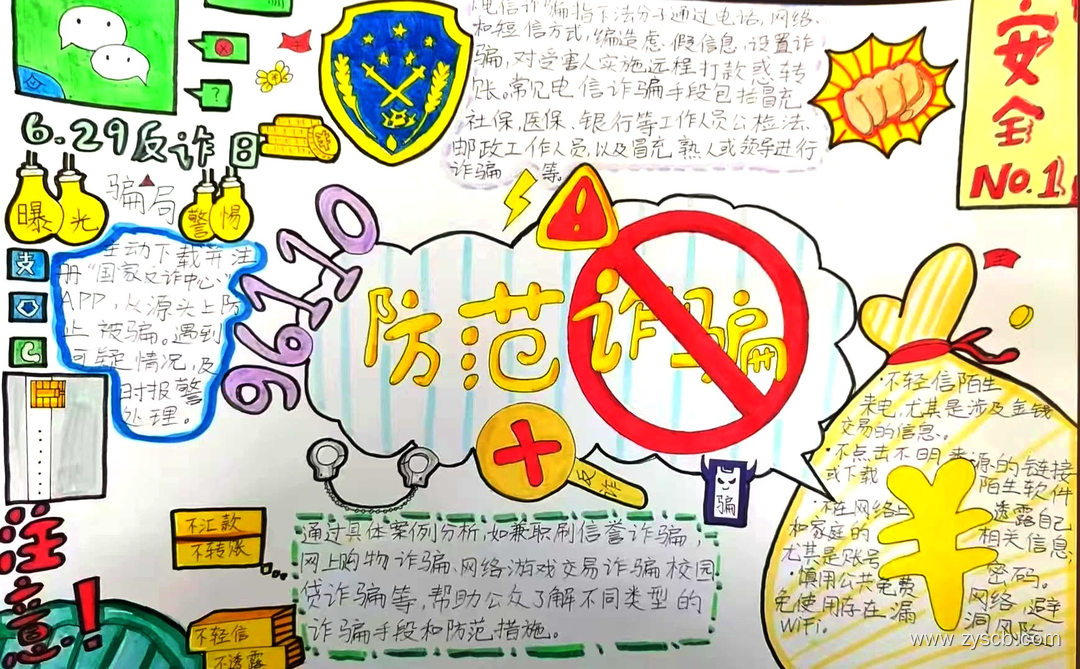 电信诈骗指不法分子通过电话,网络、
和短信方式,编造虚假信息,设置诈
骗,对受害人实施远程打款或转
账。常见电信诈骗手段包括冒充
社保,医保、银行等工作人员公检法、
邮政工作人员,以及冒充熟人或领导进行
诈骗等。
安全
No.1
?
6.29反诈日
骗局
曝光
警惕
主动下载并注
册“国家反诈中心”
APP,从源头上防
止被骗。遇到
可疑情况,及
时报警
处理。
支
96110
!
防范诈骗
反诈
骗
不汇款
不转账
不轻信
不透露
注意!
通过具体案例分析,如兼职刷信誉诈骗,
网上购物诈骗、网络游戏交易诈骗校园
贷诈骗等,帮助公众了解不同类型的
诈骗手段和防范措施。
·不轻信陌生
来电,尤其是涉及金钱
交易的信息。
·不点击不明来源的链接
或下载陌生软件
·不在网络上透露自己
和家庭的相关信息,
尤其是账号密码。
·慎用公共免费网络,避
免使用存在漏洞风险
WiFi。
¥
www.zyscb.com